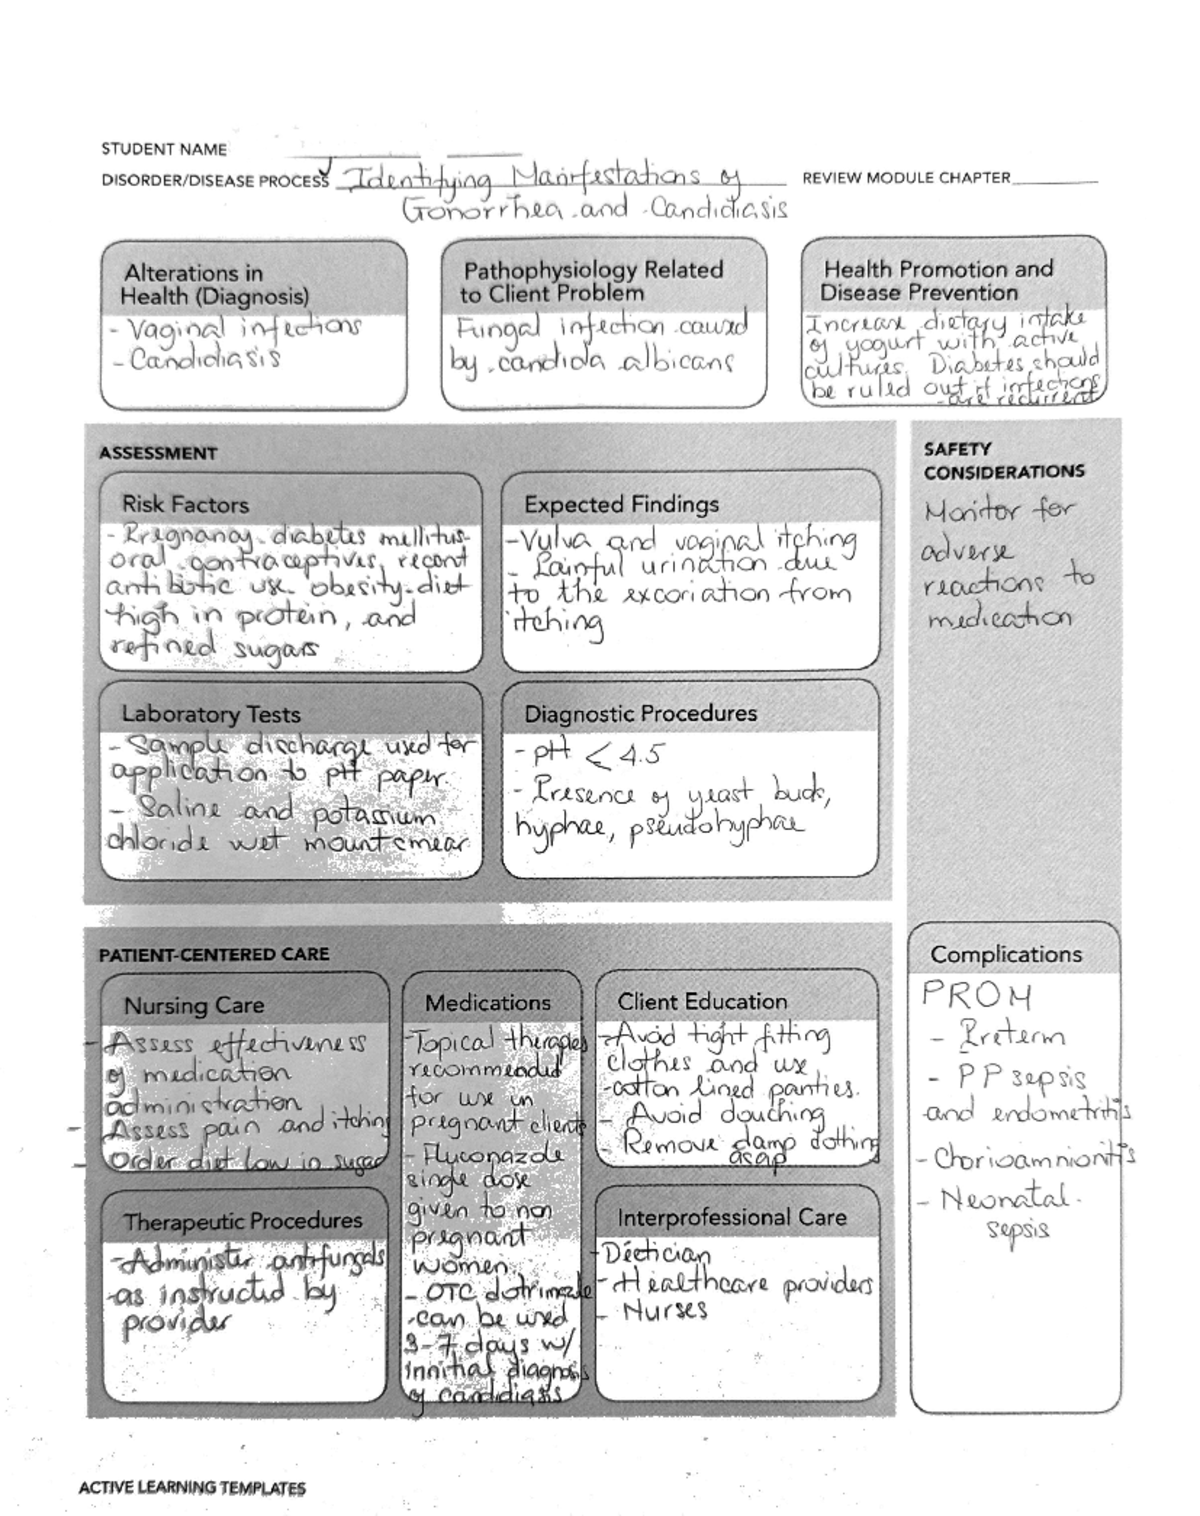 STUDENT NAME
DISORDER/DISEASE PROCESS Identifying Manifestations of
REVIEW MODULE CHAPTER
Gonorrhea and Candidiasis
Alterations in
Health (Diagnosis)
- Vaginal infections
- Candidiasis
Pathophysiology Related
to Client Problem
Fungal infection caused
by candida albicans
Health Promotion and
Disease Prevention
Increase dietary intake
of yogurt with active
cultures. Diabetes should
be ruled out if infections
are recurrent
ASSESSMENT
Risk Factors
- Pregnancy diabetes mellitus
oral contraceptives, recent
antibiotic use obesity diet
high in protein, and
refined sugars
Expected Findings
- Vulva and vaginal itching
- Painful urination due
to the excoriation from
itching
Laboratory Tests
- Sample discharge used for
application to pH paper.
- Saline and potassium
chloride wet mount smear
Diagnostic Procedures
- pH < 4.5
- Presence of yeast buds,
hyphae, pseudohyphae
SAFETY
CONSIDERATIONS
Monitor for
adverse
reactions to
medication
PATIENT-CENTERED CARE
Nursing Care
- Assess effectiveness
of medication
administration
- Assess pain and itching
- Order diet low in sugar
Medications
- Topical therapies
recommended
for use in
pregnant clients
- Fluconazole
single dose
given to non
pregnant
women.
- OTC clotrimazole
can be used
3-7 days w/
innitial diagnosis
of candidiasis
Client Education
- Avoid tight fitting
clothes and use
cotton lined panties.
- Avoid douching
- Remove damp clothing
asap
Therapeutic Procedures
- Administer antifungals
as instructed by
provider
Interprofessional Care
- Dietician
- Healthcare providers
- Nurses
Complications
PROM
- Preterm
- PP sepsis
and endometritis
- Chorioamnionitis
- Neonatal
sepsis
ACTIVE LEARNING TEMPLATES